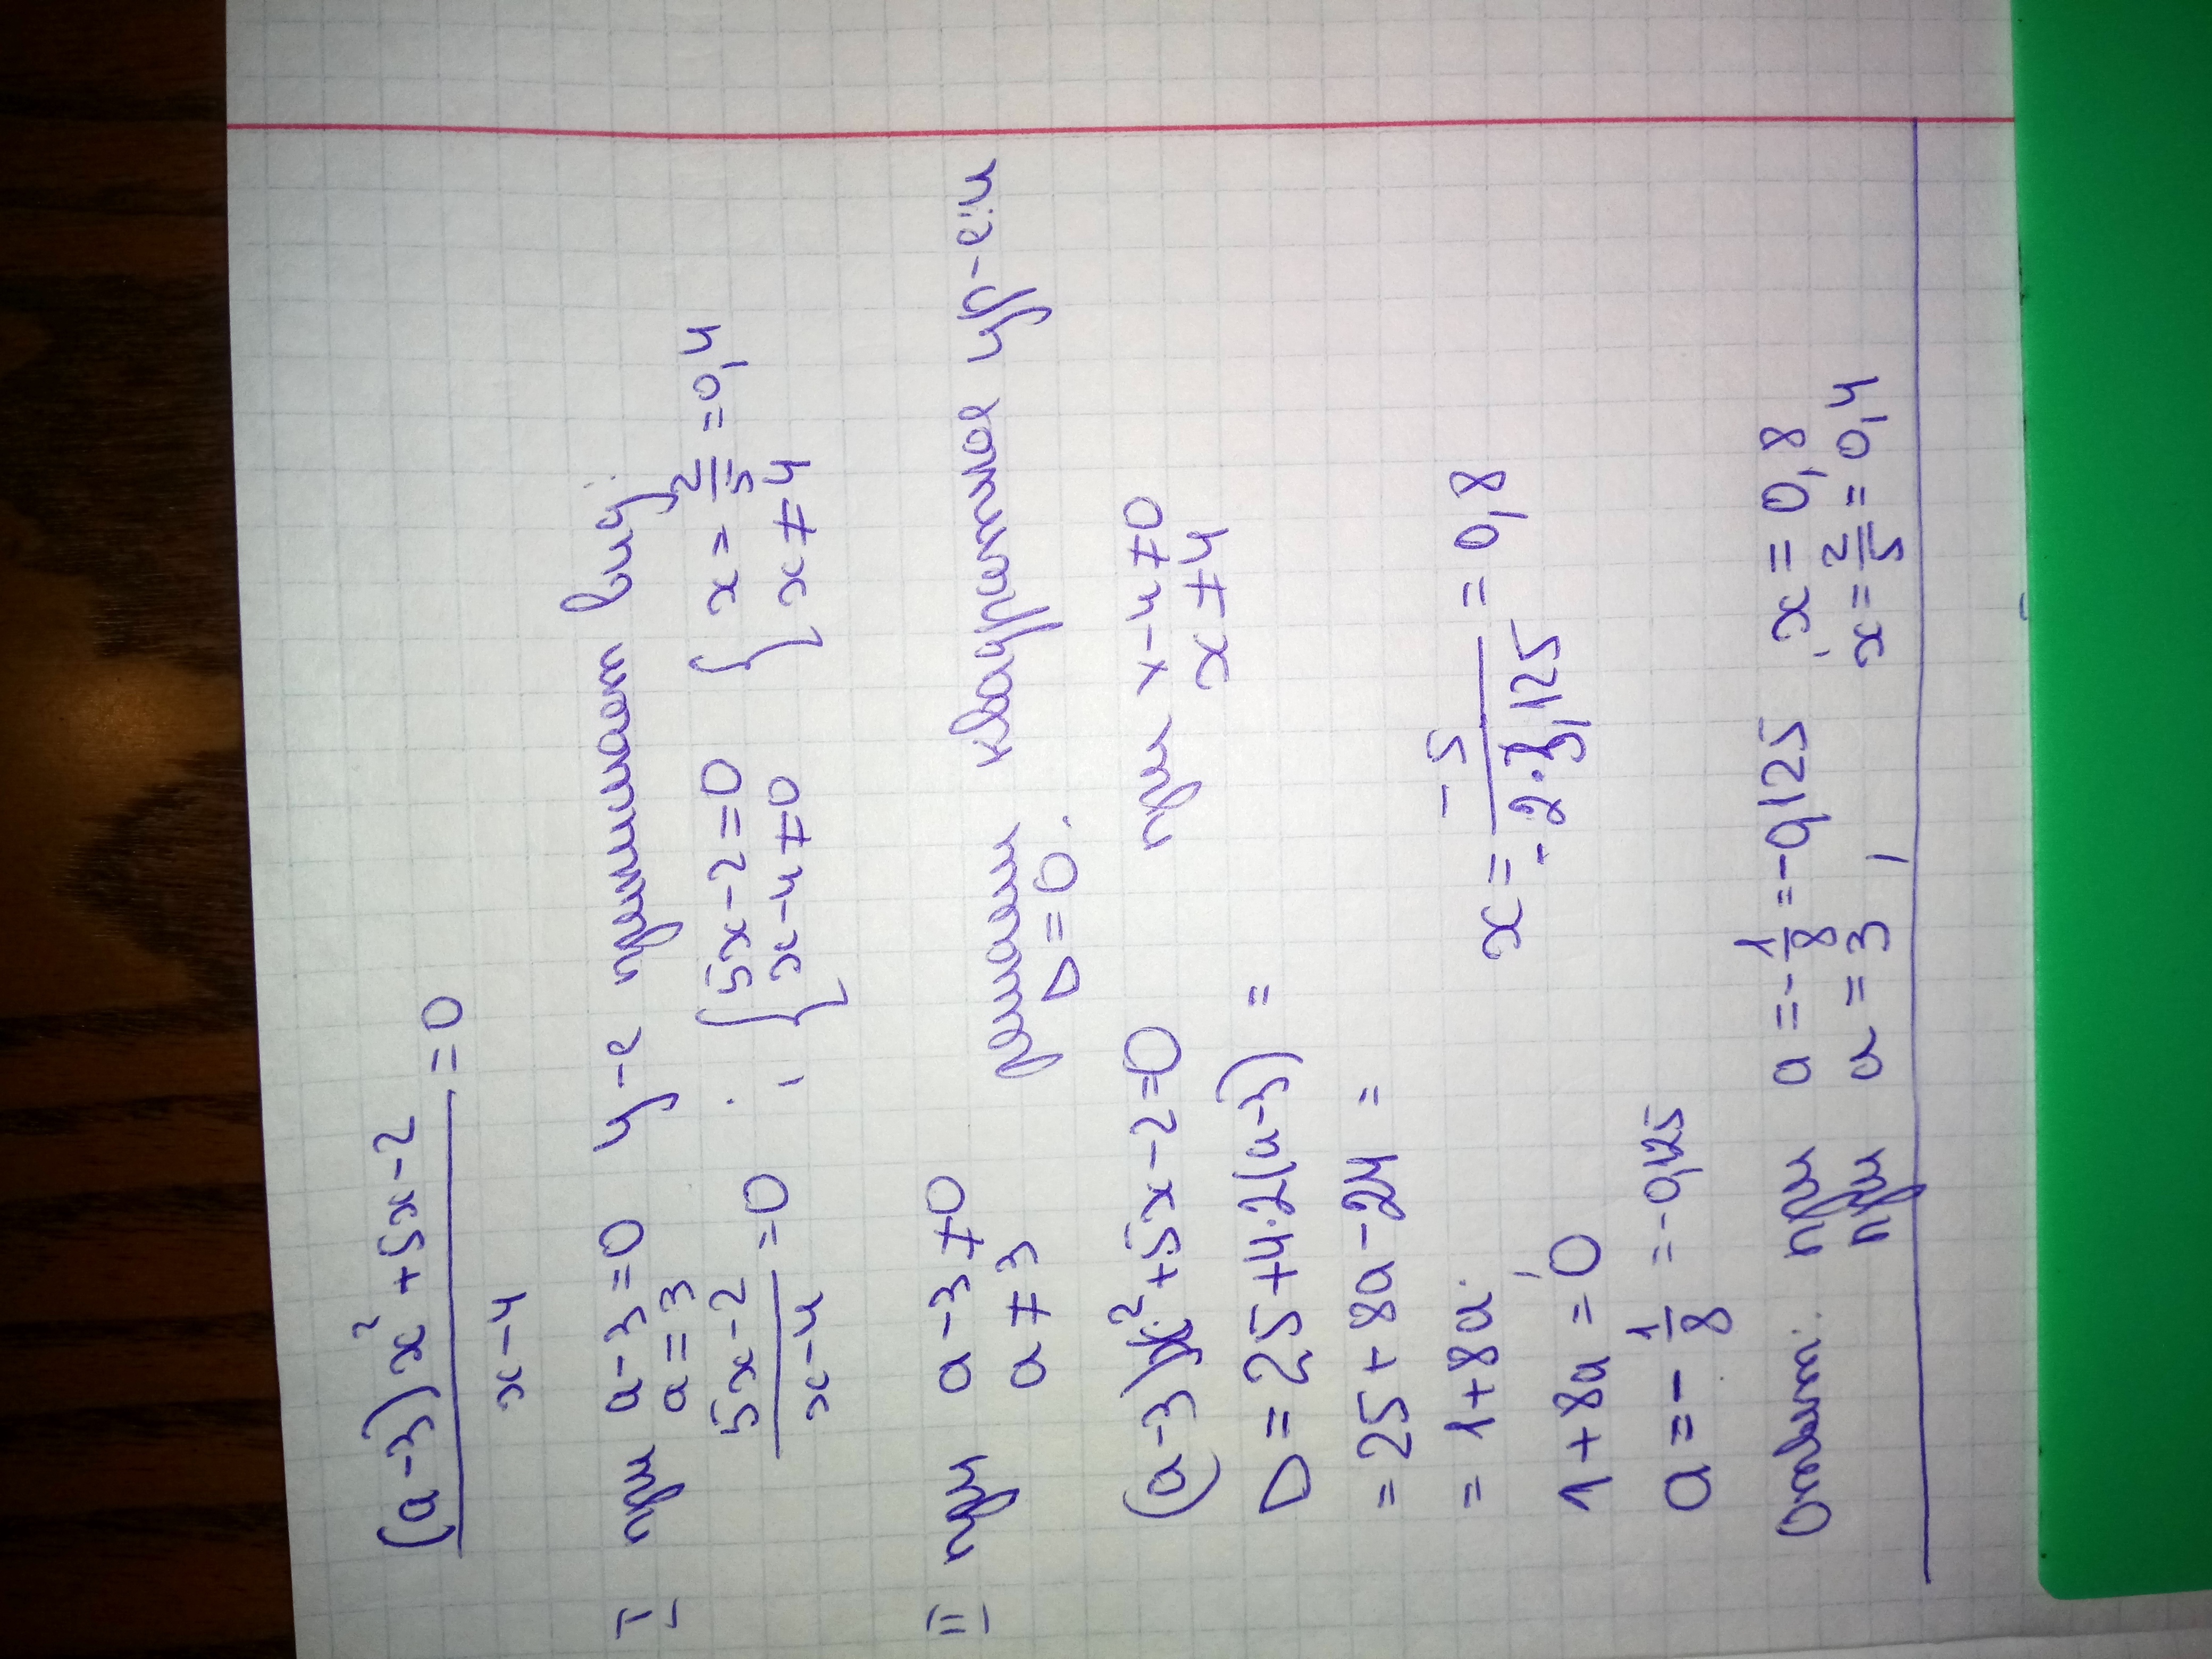 (a-3)x²+5x-2 / x-4 = 0
I при a-3=0 у-е принимает вид:
a=3
5x-2 / x-4 = 0 ; { 5x-2=0 { x=2/5=0,4
x-4≠0 x≠4
II при a-3≠0 решаем квадратное ур-еие
a≠3 D=0.
(a-3)x²+5x-2=0 при x-4≠0
x≠4
D=25+4·2(a-3) =
=25+8a-24 =
=1+8a. x= -5 / -2·3,125 = 0,8
1+8a=0
a=-1/8 =-0,125
Ответ: при a=-1/8=-0,125 , x=0,8
при a=3 , x=2/5=0,4